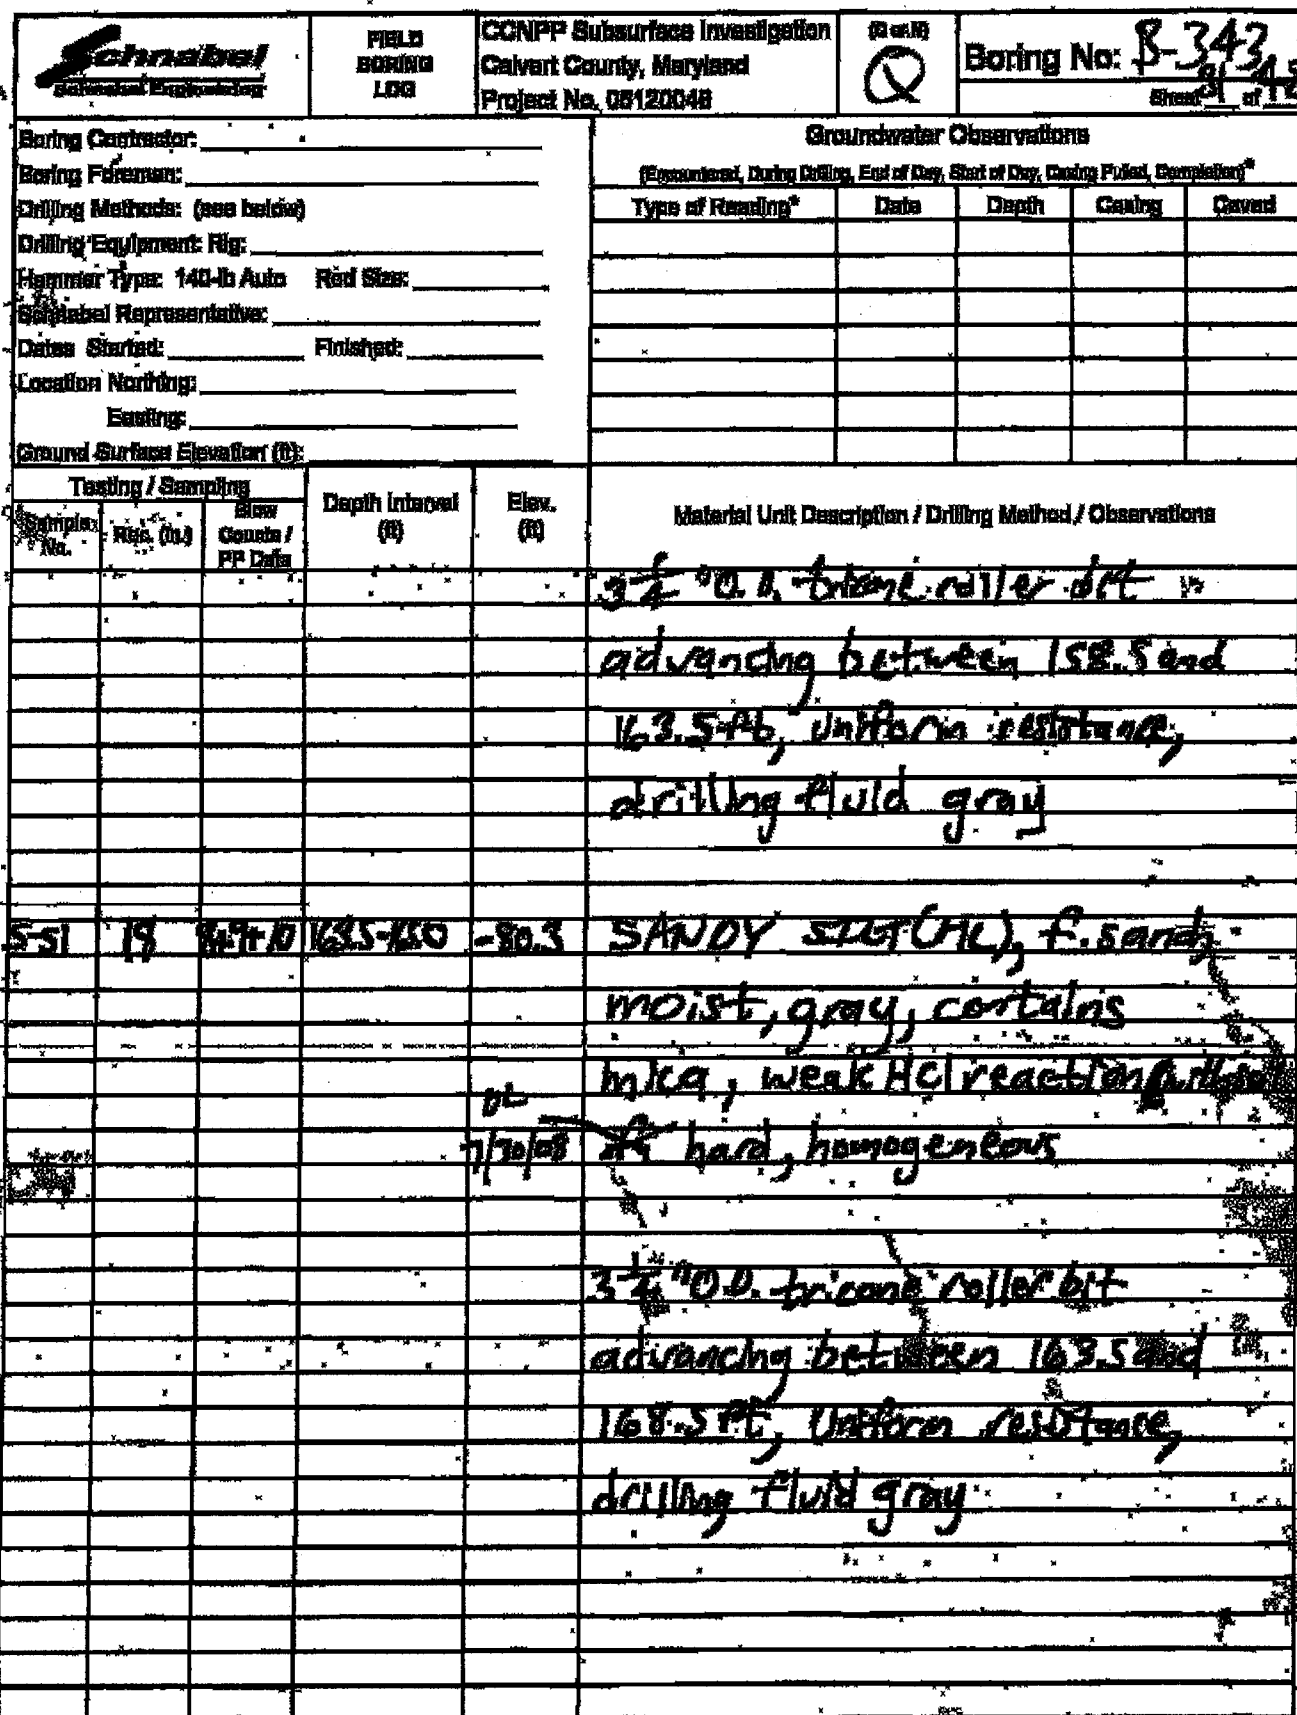 Schnabel
Schnabel Engineering
FIELD
BORING
LOG
CCNPP Subsurface Investigation
Calvert County, Maryland
Project No. 06120048
(Q or N)
Q
Boring No: B-343
Sheet 31 of 42
Boring Contractor:
Boring Foreman:
Drilling Methods: (see below)
Drilling Equipment: Rig:
Hammer Type: 140-lb Auto Rod Size:
Schnabel Representative:
Dates Started: Finished:
Location Northing:
Easting:
Ground Surface Elevation (ft):
Groundwater Observations
(Encountered, During Drilling, End of Day, Start of Day, Casing Pulled, Completion)*
Type of Reading* Date Depth Casing Caved
Testing / Sampling
Sample No. Rec. (in.) Blow Counts / PP Data Depth Interval (ft) Elev. (ft) Material Unit Description / Drilling Method / Observations
3 1/4 "O.D. tricone roller bit
advancing between 158.5 and
163.5 ft, uniform resistance,
drilling fluid gray
S-51 18 163.5-165.0 -80.3 SANDY SILT (ML), f. sand,
moist, gray, contains
mica, weak HCl reaction
7/30/08 hard, homogeneous
3 1/4 "O.D. tricone roller bit
advancing between 163.5 and
168.5 ft, Uniform resistance,
drilling fluid gray